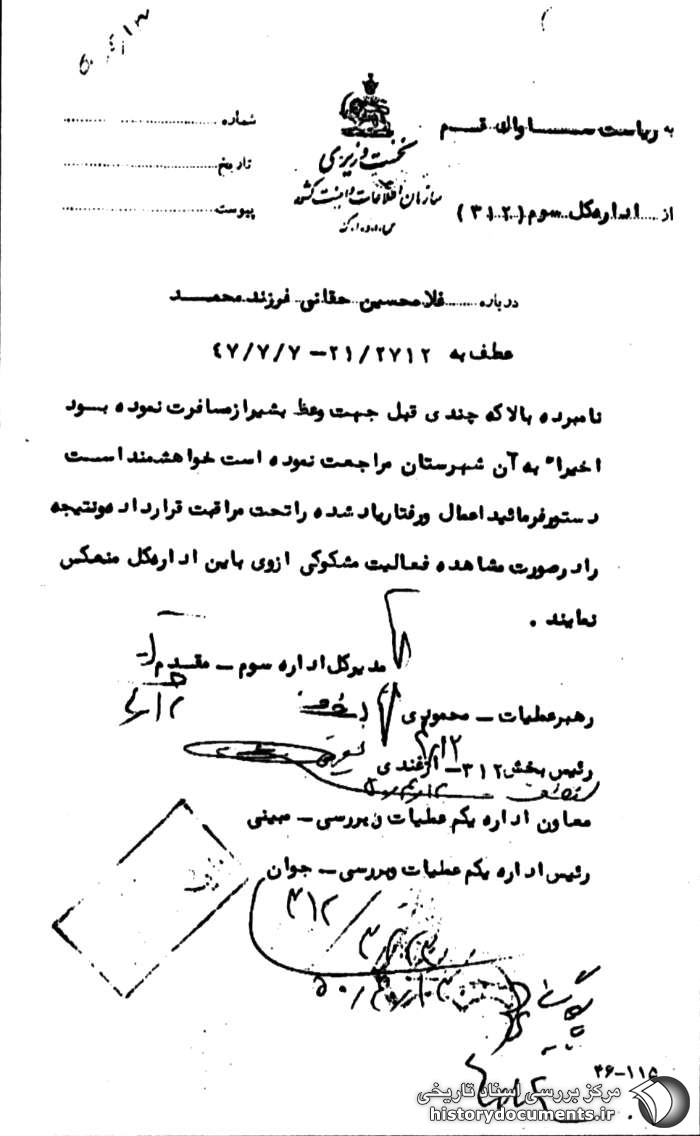 به ریاست ساواک قم
از اداره کل سوم (۳۱۲)
نخست وزیری
سازمان اطلاعات و امنیت کشور
س.ا.و.ا.ک
شماره
تاریخ
پیوست
درباره غلامحسین حقانی فرزند محمد
عطف به ۲۱/۲۷۱۲ - ۴۷/۷/۷
نامبرده بالا که چندی قبل جهت وعظ بشیراز مسافرت نموده بود
اخیرا" به آن شهرستان مراجعت نموده است خواهشمند است
دستور فرمائید اعمال ورفتار یاد شده را تحت مراقبت قرار داده ونتیجه
را در صورت مشاهده فعالیت مشکوکی از وی باین اداره کل منعکس
نمایند .
مدیر کل اداره سوم - مقدم
رهبر عملیات - محمودی
رئیس بخش ۳۱۲ - ازغندی
معاون اداره یکم عملیات و بررسی - مبینی
رئیس اداره یکم عملیات وبررسی - جوان
۳۱۲
۳۶-۱۱۵
مرکز بررسی اسناد تاریخی
historydocuments.ir